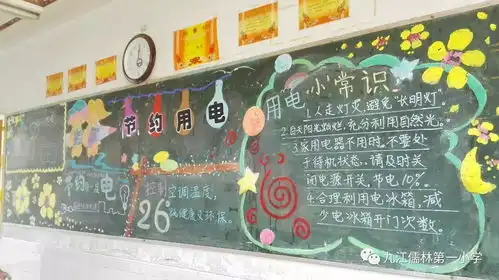 节约用电
节约 电
控制空调温度,
26 既健康又环保。
用电小常识
1.人走灯灭,避免“长明灯”
2.白天阳光充足,充分利用自然光。
3.家用电器不用时,不要处
于待机状态,请及时关
闭电源开关,节电10%
4.合理利用电冰箱,减
少电冰箱开门次数。
九江儒林第一小学